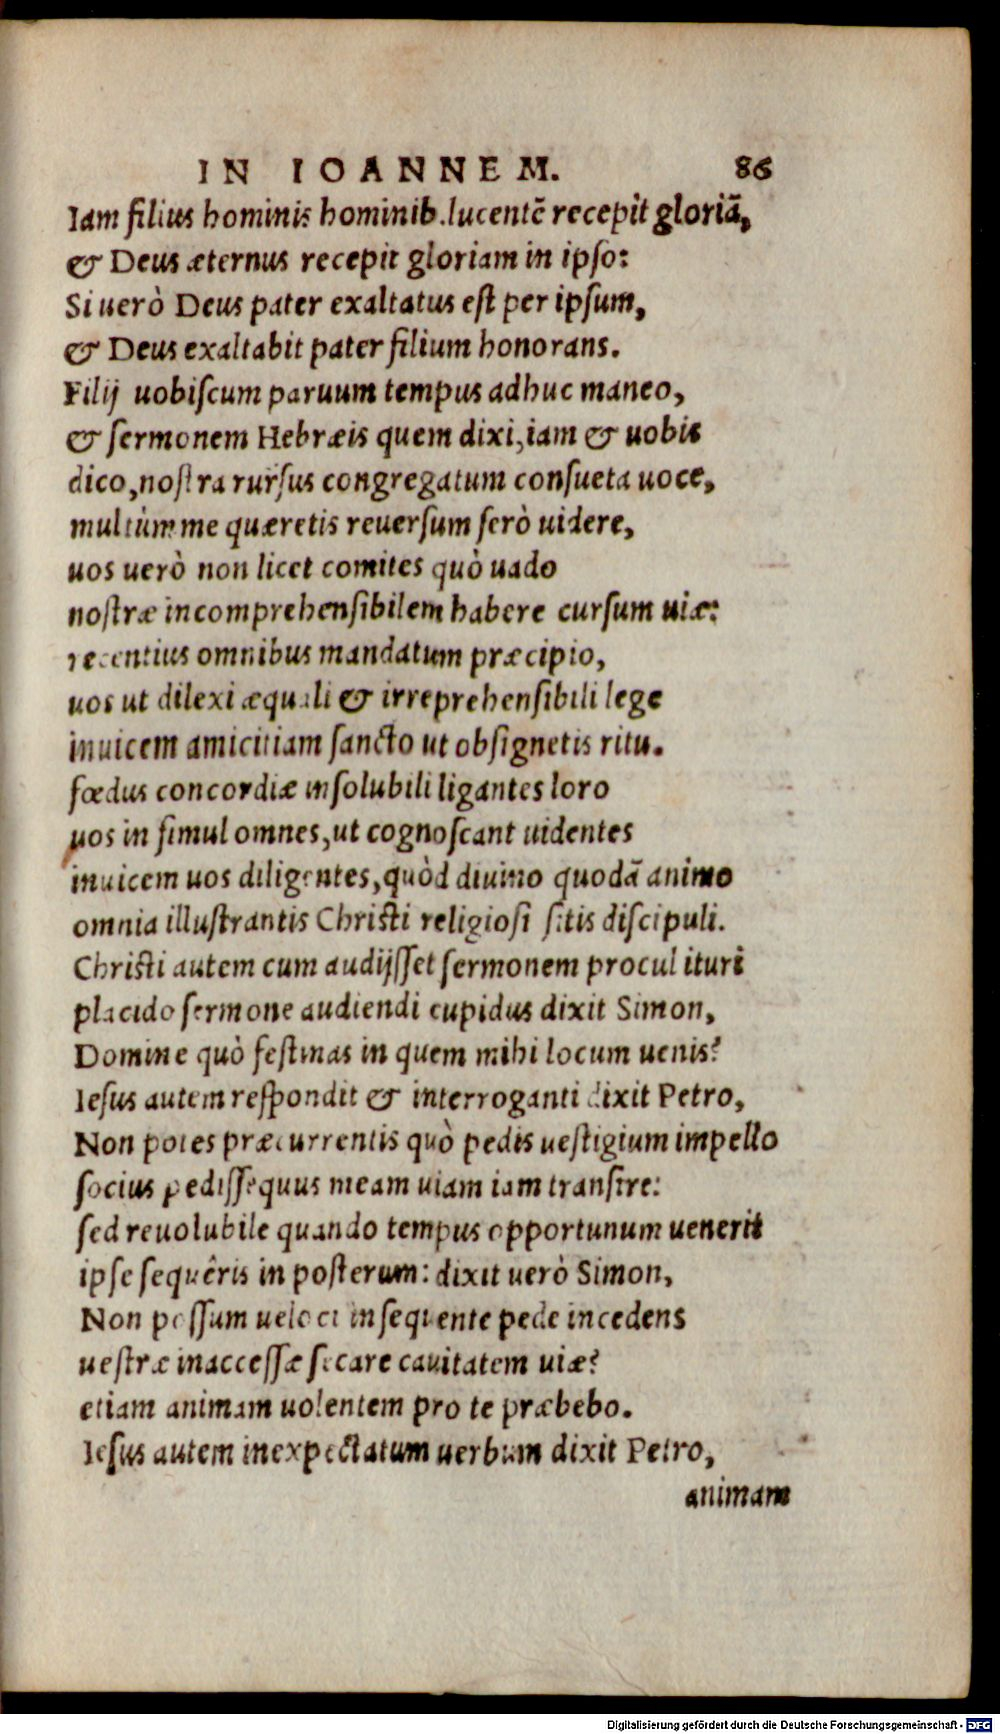 IN IOANNEM. 86
Iam filius hominis hominib.lucentẽ recepit gloriã,
& Deus æternus recepit gloriam in ipso:
Si uerò Deus pater exaltatus est per ipsum,
& Deus exaltabit pater filium honorans.
Filij uobiscum paruum tempus adhuc maneo,
& sermonem Hebræis quem dixi, iam & uobis
dico, nostra rursus congregatum consueta uoce,
multùm me quæretis reuersum serò uidere,
uos uerò non licet comites quò uado
nostræ incomprehensibilem habere cursum uiæ:
recentius omnibus mandatum præcipio,
uos ut dilexi æquali & irreprehensibili lege
inuicem amicitiam sancto ut obsignetis ritu.
fœdus concordiæ insolubili ligantes loro
uos in simul omnes, ut cognoscant uidentes
inuicem uos diligentes, quòd diuino quodã animo
omnia illustrantis Christi religiosi sitis discipuli.
Christi autem cum audijsset sermonem procul ituri
placido sermone audiendi cupidus dixit Simon,
Domine quò festinas in quem mihi locum uenis?
Iesus autem respondit & interroganti dixit Petro,
Non potes præcurrentis quò pedis uestigium impello
socius pedissequus meam uiam iam transire:
sed reuolubile quando tempus opportunum uenerit
ipse sequêris in posterum: dixit uerò Simon,
Non possum ueloci insequente pede incedens
uestræ inaccessæ secare cauitatem uiæ?
etiam animam uolentem pro te præbebo.
Iesus autem inexpectatum uerbum dixit Petro,
animam
Digitalisierung gefördert durch die Deutsche Forschungsgemeinschaft - DFG